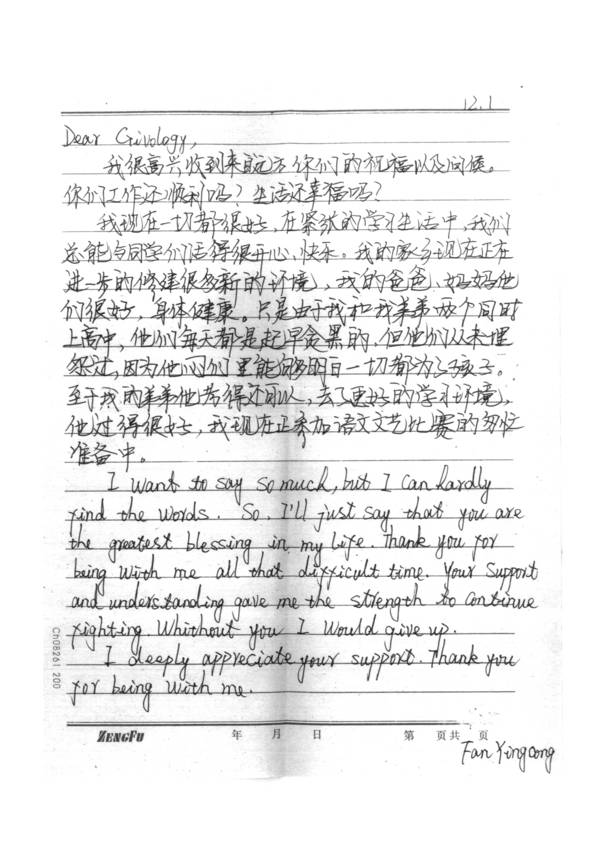 12.1
Dear Givology,
我很高兴收到来自远方你们的祝福以及问候。
你们工作还顺利吗？生活还幸福吗？
我现在一切都很好，在紧张的学习生活中，我们
总能与同学们活得很开心、快乐。我的家乡现在正在
进一步的修建很多新的环境，我的爸爸、妈妈他
们很好，身体健康。只是由于我和我弟弟两个同时
上高中，他们每天都是起早贪黑的，但他们从未埋
怨过，因为他们心里能够明白一切都为了孩子。
至于我的弟弟他考得还可以，去了更好的学习环境，
他过得很好，我现在正参加语文文艺比赛的匆忙
准备中。
I want to say so much, but I can hardly
find the words. So, I'll just say that you are
the greatest blessing in my life. Thank you for
being with me all that difficult time. Your support
and understanding gave me the strength to continue
fighting. Whithout you I would give up.
I deeply appreciate your support. Thank you
for being with me.
Ch08261 200
ZENGFU 年 月 日 第 页共 页
Fan Yingcong